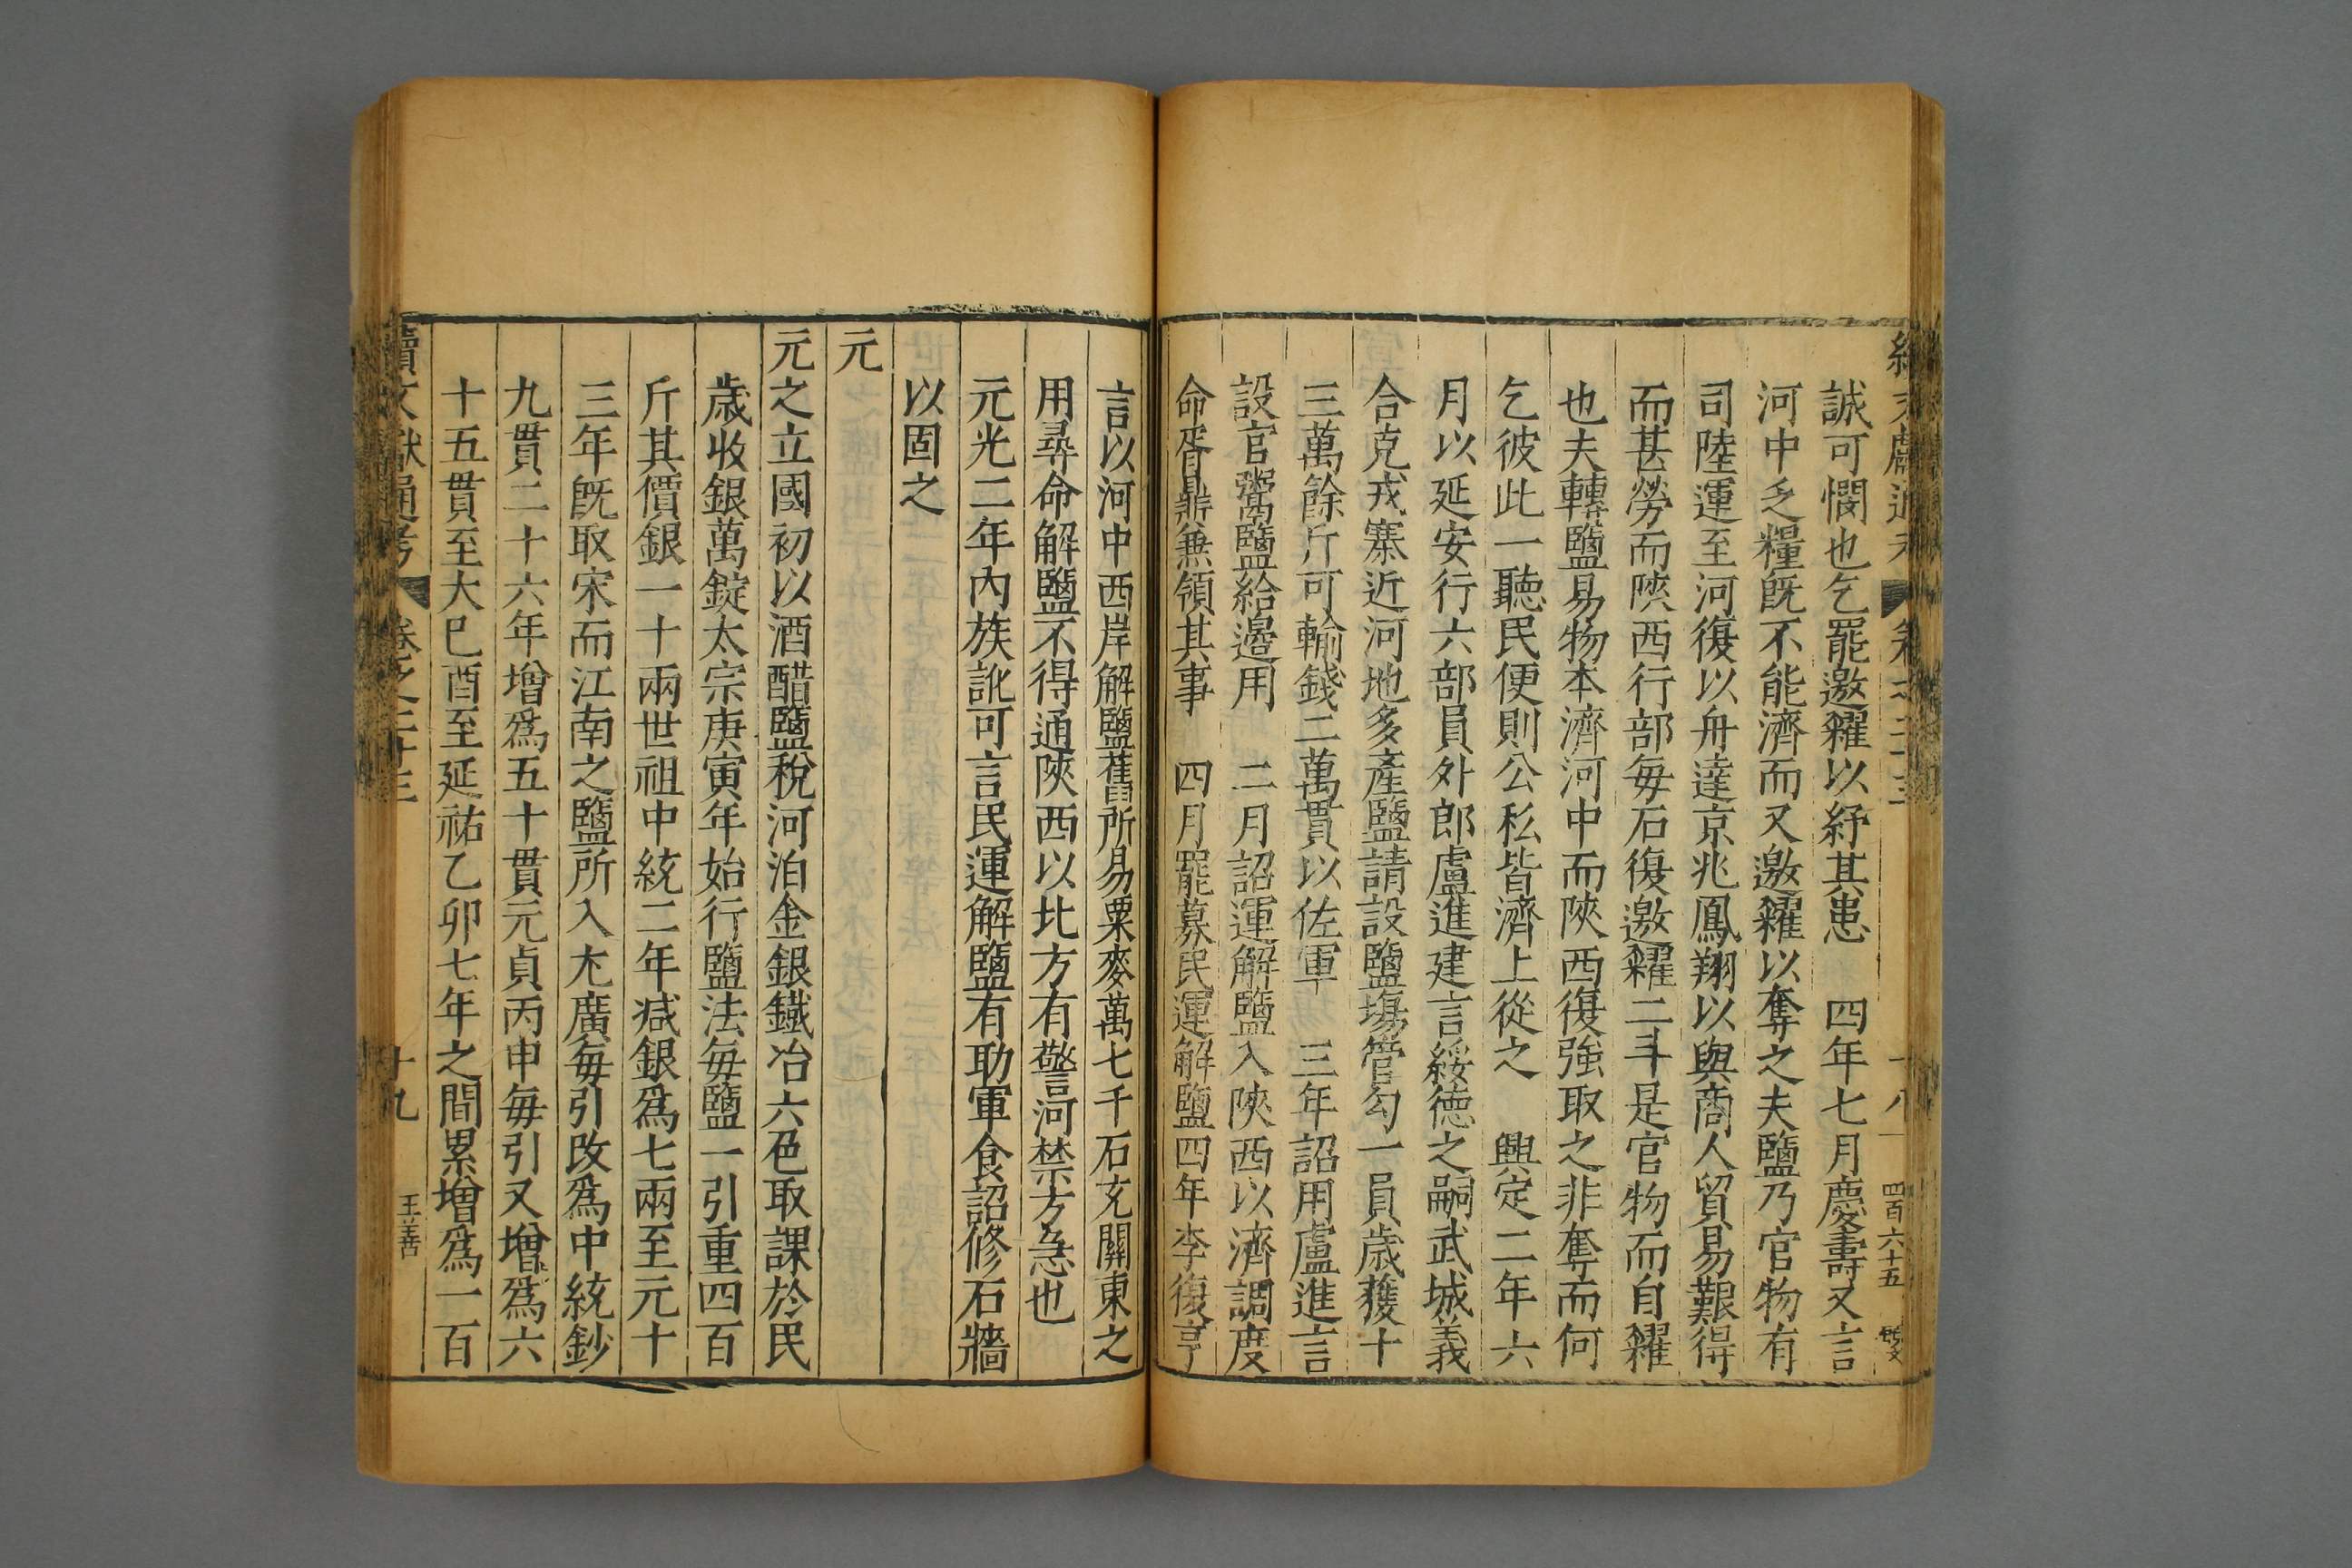 誠可憫也乞罷邀糴以紓其患　四年七月慶壽又言
河中乏糧旣不能濟而又邀糴以奪之夫鹽乃官物有
司陸運至河復以舟達京兆鳳翔以與商人貿易艱得
而甚勞而陝西行部每石復邀糴二斗是官物而自糴
也夫轉鹽易物本濟河中而陝西復強取之非奪而何
乞彼此一聽民便則公私皆濟上從之　興定二年六
月以延安行六部員外郎盧進建言綏德之嗣武城義
合克戎寨近河地多產鹽請設鹽場管勾一員歲獲十
三萬餘斤可輸錢二萬貫以佐軍　三年詔用盧進言
設官鬻鹽給邊用　二月詔運解鹽入陝西以濟調度
命胥鼎兼領其事　四月罷募民運解鹽四年李復亨
言以河中西岸解鹽舊所易粟麥萬七千石充關東之
用尋命解鹽不得通陝西以北方有警河禁方急也
元光二年內族訛可言民運解鹽有助軍食詔修石牆
以固之
元
元之立國初以酒醋鹽稅河泊金銀鐵冶六色取課於民
歲收銀萬錠太宗庚寅年始行鹽法每鹽一引重四百
斤其價銀一十兩世祖中統二年减銀爲七兩至元十
三年旣取宋而江南之鹽所入尤廣每引改爲中統鈔
九貫二十六年增爲五十貫元貞丙申每引又增爲六
十五貫至大己酉至延祐乙卯七年之間累增爲一百
續文獻通考　卷之二十三　十九　王善